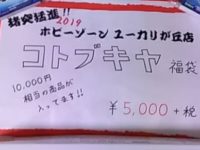 猪突猛進!!
2019
ホビーゾーン ユーカリが丘店
コトブキヤ 福袋
10,000円
相当の商品が
入ってます!!
¥5,000+税